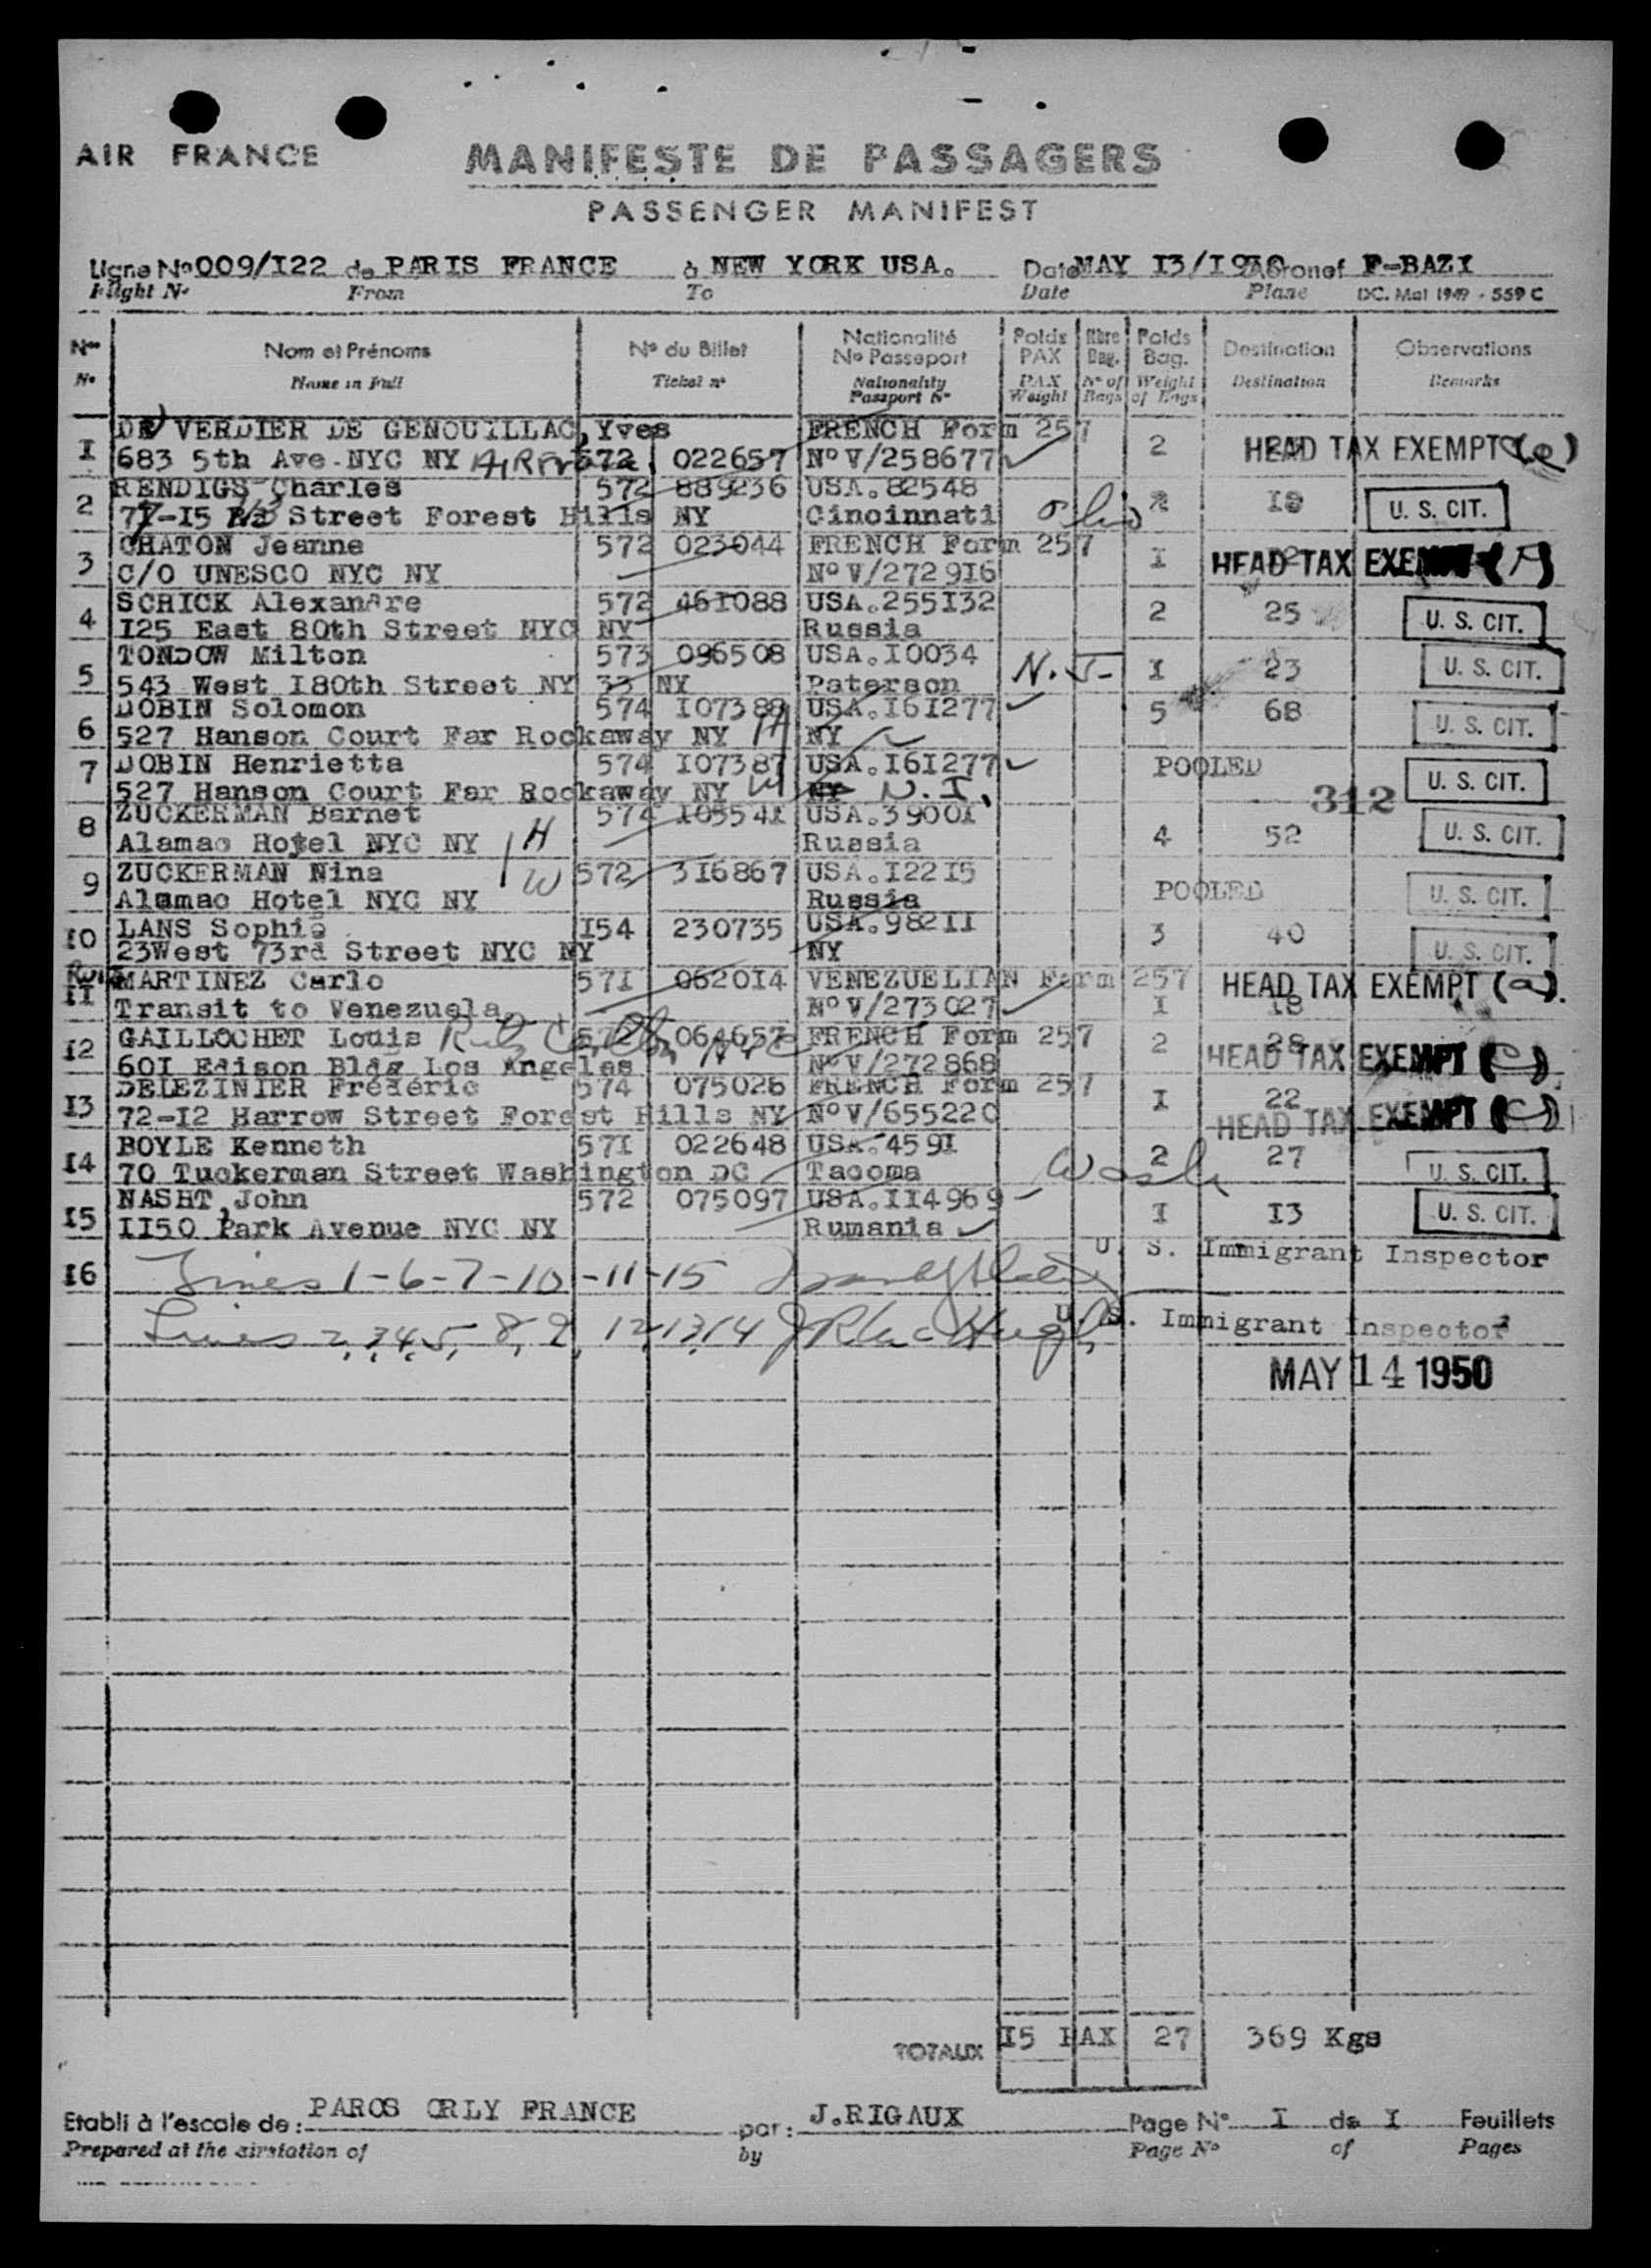 AIR FRANCE
MANIFESTE DE PASSAGERS
PASSENGER MANIFEST
Ligne No 009/I22 de PARIS FRANCE à NEW YORK USA. Date MAY I3/I950 Aéronef F-BAZI
Flight No From To Date Plane DC. Mat 1949 - 559 C
Nos Nom et Prénoms No du Billet Nationalité No Passeport Poids PAX Nbre Bag. Poids Bag. Destination Observations
No Name in Full Ticket no Nationality Passport No PAX Weight No of Bags Weight of Bags Destination Remarks
I DE VERDIER DE GENOUILLAC, Yves FRENCH Form 257
683 5th Ave. NYC NY Air France 572 022657 No V/258677 2 HEAD TAX EXEMPT (e)
2 RENDIGS Charles 572 889236 USA. 82548
-I5 Street Forest Hills NY Cincinnati Ohio 2 U. S. CIT.
3 CHATON Jeanne 572 023044 FRENCH Form 257
C/O UNESCO NYC NY No V/2729I6 I HEAD TAX EXEMPT
4 SCHICK Alexandre 572 46I088 USA.255I32
I25 East 80th Street NYC NY Russia 2 25 U. S. CIT.
5 TONDOW Milton 573 096508 USA.I0034
543 West I80th Street NY 33 NY Paterson N.J. I 23 U. S. CIT.
6 DOBIN Solomon 574 I07388 USA.I6I277
527 Hanson Court Far Rockaway NY H NY 5 68 U. S. CIT.
7 DOBIN Henrietta 574 I07387 USA.I6I277 POOLED
527 Hanson Court Far Rockaway NY W NY 312 U. S. CIT.
8 ZUCKERMAN Barnet 574 I0554I USA.3900I
Alamac Hotel NYC NY H Russia 4 52 U. S. CIT.
9 ZUCKERMAN Nina W 572 3I6867 USA.I22I5
Alamac Hotel NYC NY Russia POOLED U. S. CIT.
I0 LANS Sophie I54 230735 USA.982II
23West 73rd Street NYC NY NY 3 40 U. S. CIT.
II MARTINEZ Carlo 57I 0620I4 VENEZUELIAN Form 257 HEAD TAX EXEMPT (a).
Transit to Venezuela No V/273027 I I8
I2 GAILLOCHET Louis 572 064657 FRENCH Form 257 2 28
60I Edison Bldg Los Angeles No V/272868 HEAD TAX EXEMPT (C)
I3 DELEZINIER Frédéric 574 075026 FRENCH Form 257
72-I2 Harrow Street Forest Hills NY No V/655220 I 22 HEAD TAX EXEMPT (C)
I4 BOYLE Kenneth 57I 022648 USA.459I
70 Tuckerman Street Washington DC Tacoma Wash 2 27 U. S. CIT.
I5 NASHT, John 572 075097 USA.II4969
II50 Park Avenue NYC NY Rumania I I3 U. S. CIT.
I6 Lines 1-6-7-10-11-15 U. S. Immigrant Inspector
Lines 2,3,4,5, 8, 9, 12,13,14 U. S. Immigrant Inspector
MAY 14 1950
TOTAUX I5 PAX 27 369 Kgs
Etabli à l'escale de: PAROS ORLY FRANCE par: J.RIGAUX Page No I de I Feuillets
Prepared at the airstation of by Page No of Pages